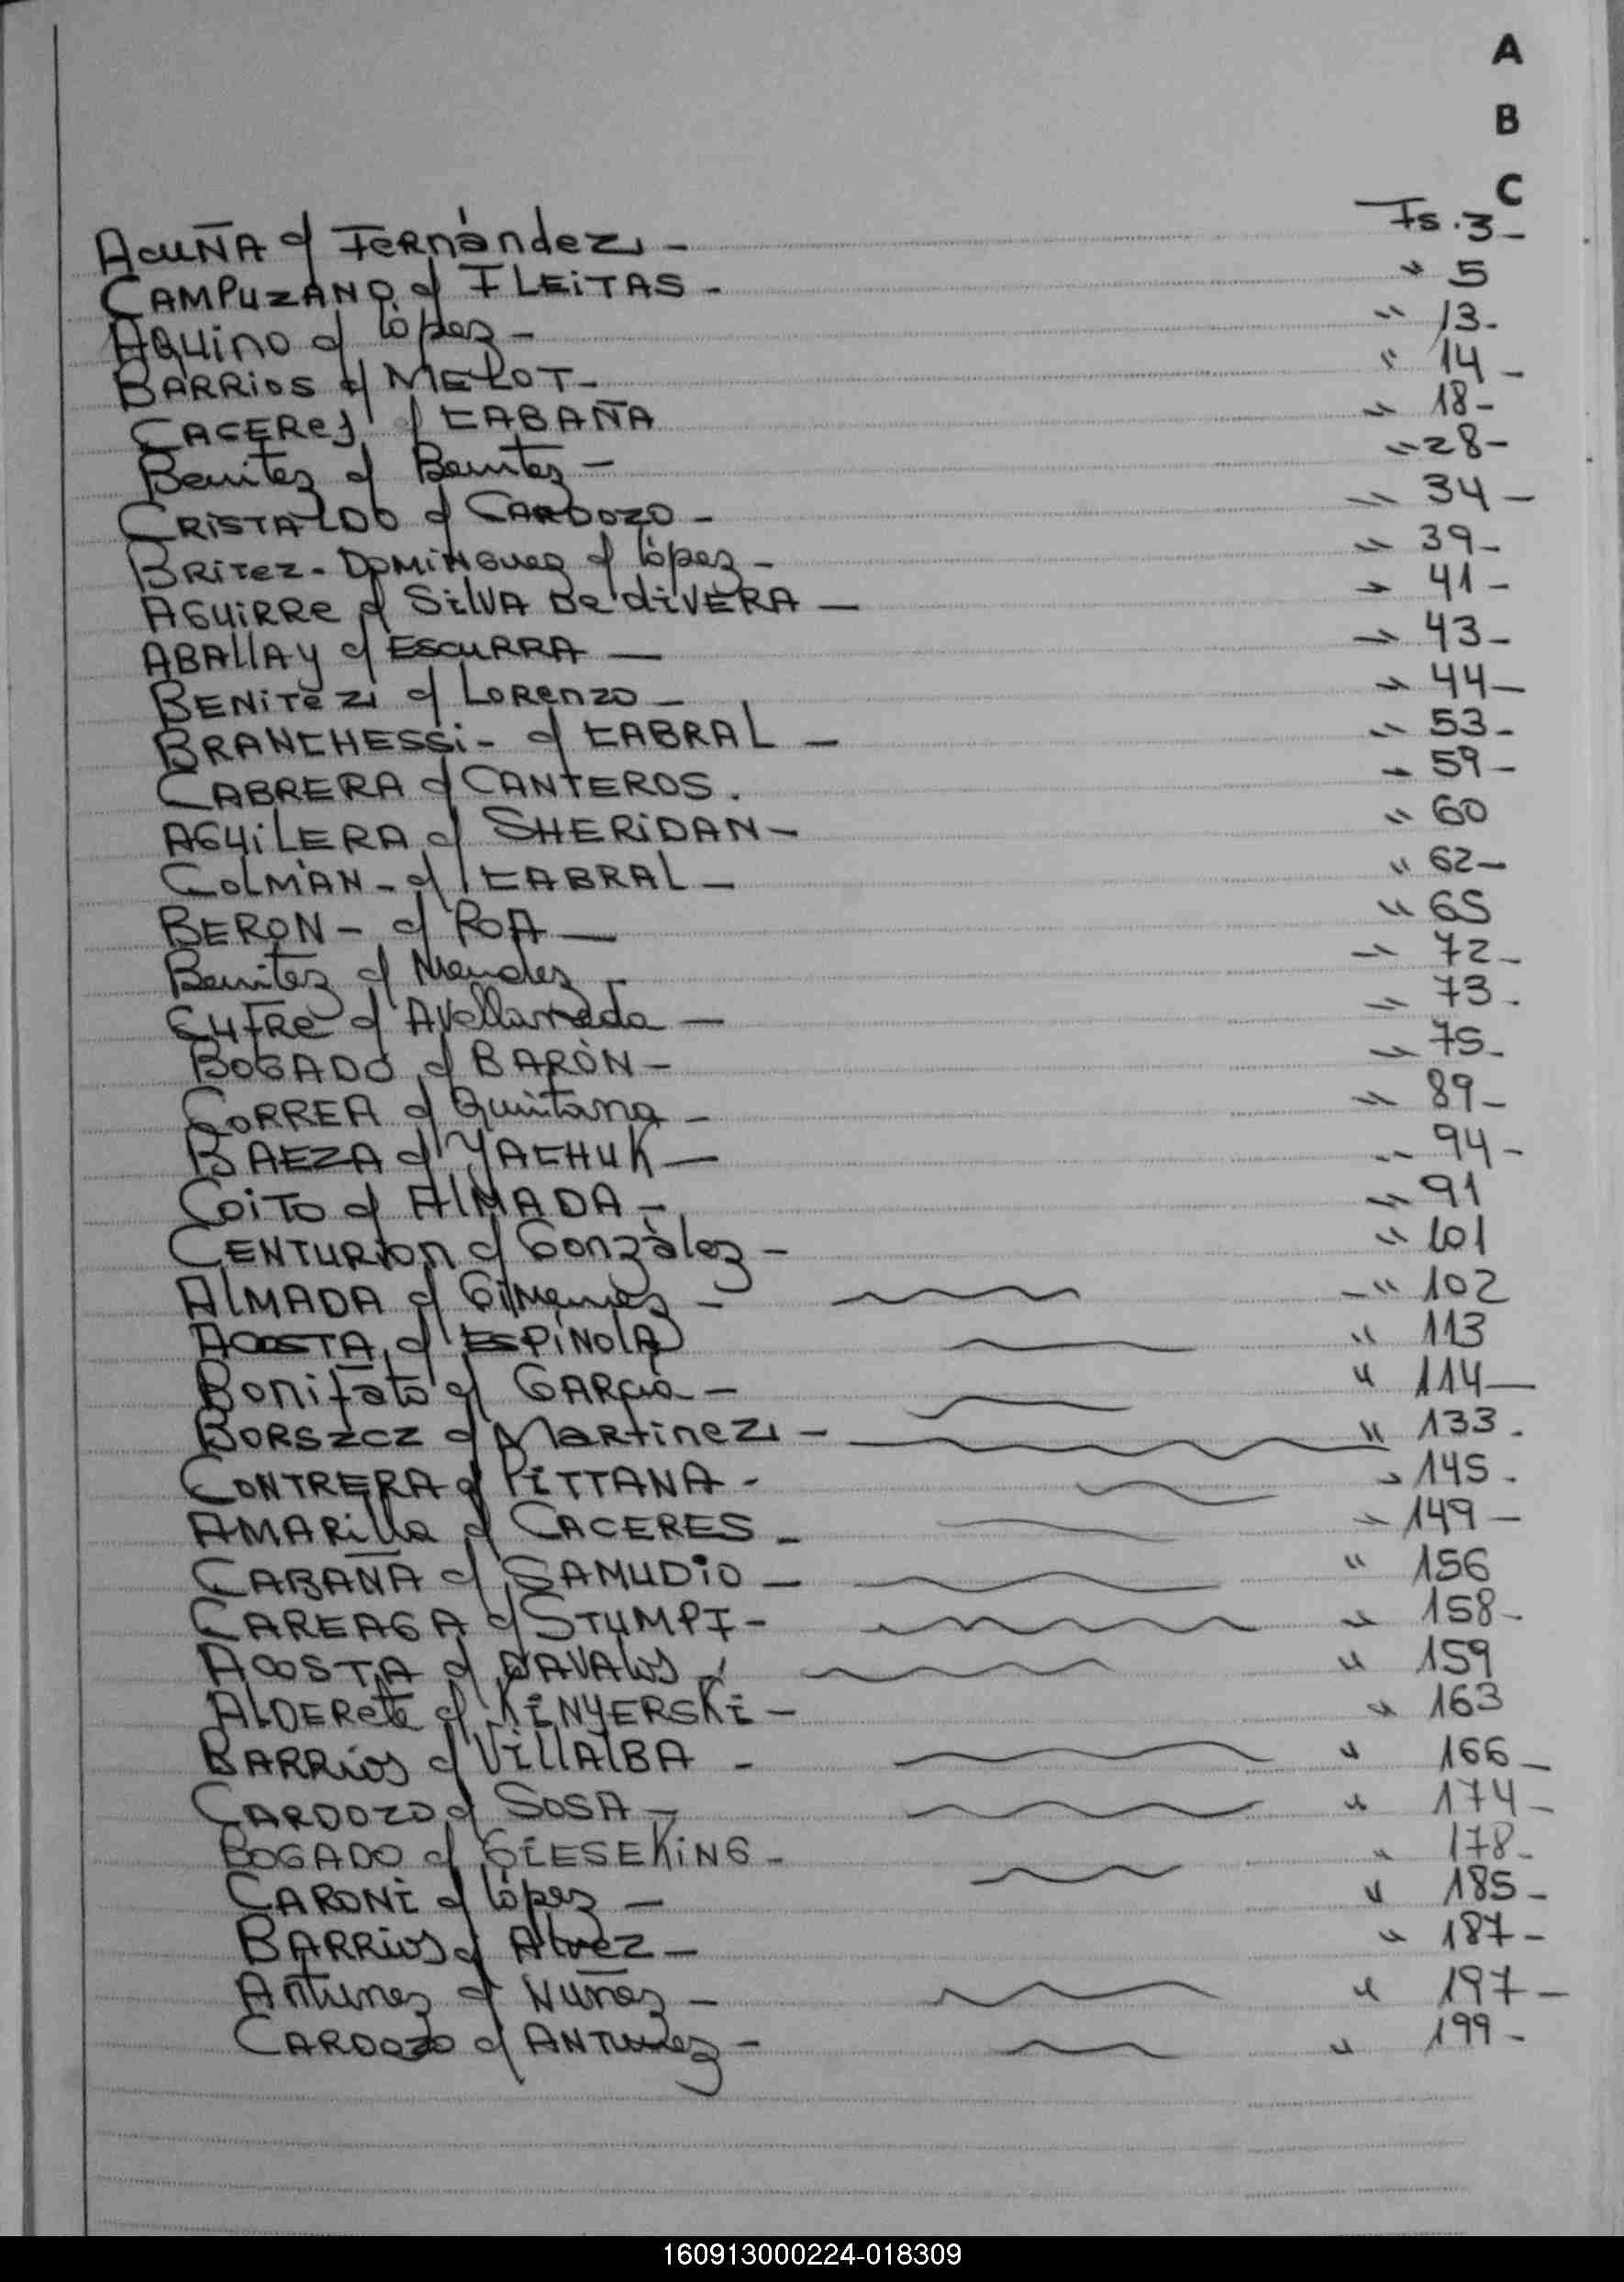 A
B
C
ACUÑA c/ FERNÁNDEZ - Fs. 3 -
CAMPUZANO c/ FLEITAS - " 5
AQUINO c/ López - " 13 -
BARRIOS c/ MELOT - " 14 -
CACERES c/ CABAÑA " 18 -
Benitez c/ Benitez - " 28 -
CRISTALDO c/ CARDOZO - " 34 -
BRITEZ - DOMINGUEZ c/ López - " 39 -
AGUIRRE c/ SILVA DE OLIVERA - " 41 -
ABALLAY c/ ESCURRA - " 43 -
BENITEZ c/ LORENZO - " 44 -
BRANCHESSI - c/ CABRAL - " 53 -
CABRERA c/ CANTEROS. " 59 -
AGUILERA c/ SHERIDAN - " 60
COLMÁN - c/ CABRAL - " 62 -
BERON - c/ ROA - " 65
Benitez c/ Mendez - " 72 -
CUFRE c/ Avellaneda - " 73 -
BOGADO c/ BARÓN - " 75 -
CORREA c/ Quintana - " 89 -
BAEZA c/ YACHUK - " 94 -
COITO c/ ALMADA - " 91
CENTURION c/ González - " 101
ALMADA c/ Gimenez - " 102
ACOSTA c/ ESPÍNOLA " 113
Bonifato c/ GARCIA - " 114 -
BORSZCZ c/ MARTINEZ - " 133 -
CONTRERA c/ PITTANA - " 145 -
AMARILLA c/ CACERES - " 149 -
CABAÑA c/ SAMUDIO - " 156
CAREAGA c/ STUMPF - " 158 -
ACOSTA c/ DAVALOS - " 159
ALDERETE c/ KINYERSKI - " 163
BARRIOS c/ VILLALBA - " 166 -
CARDOZO c/ SOSA - " 174 -
BOGADO c/ GIESEKING - " 178 -
CARONI c/ López - " 185 -
BARRIOS c/ Alvez - " 187 -
Antunez c/ Nuñez - " 197 -
CARDOZO c/ ANTUNEZ - " 199 -
160913000224-018309